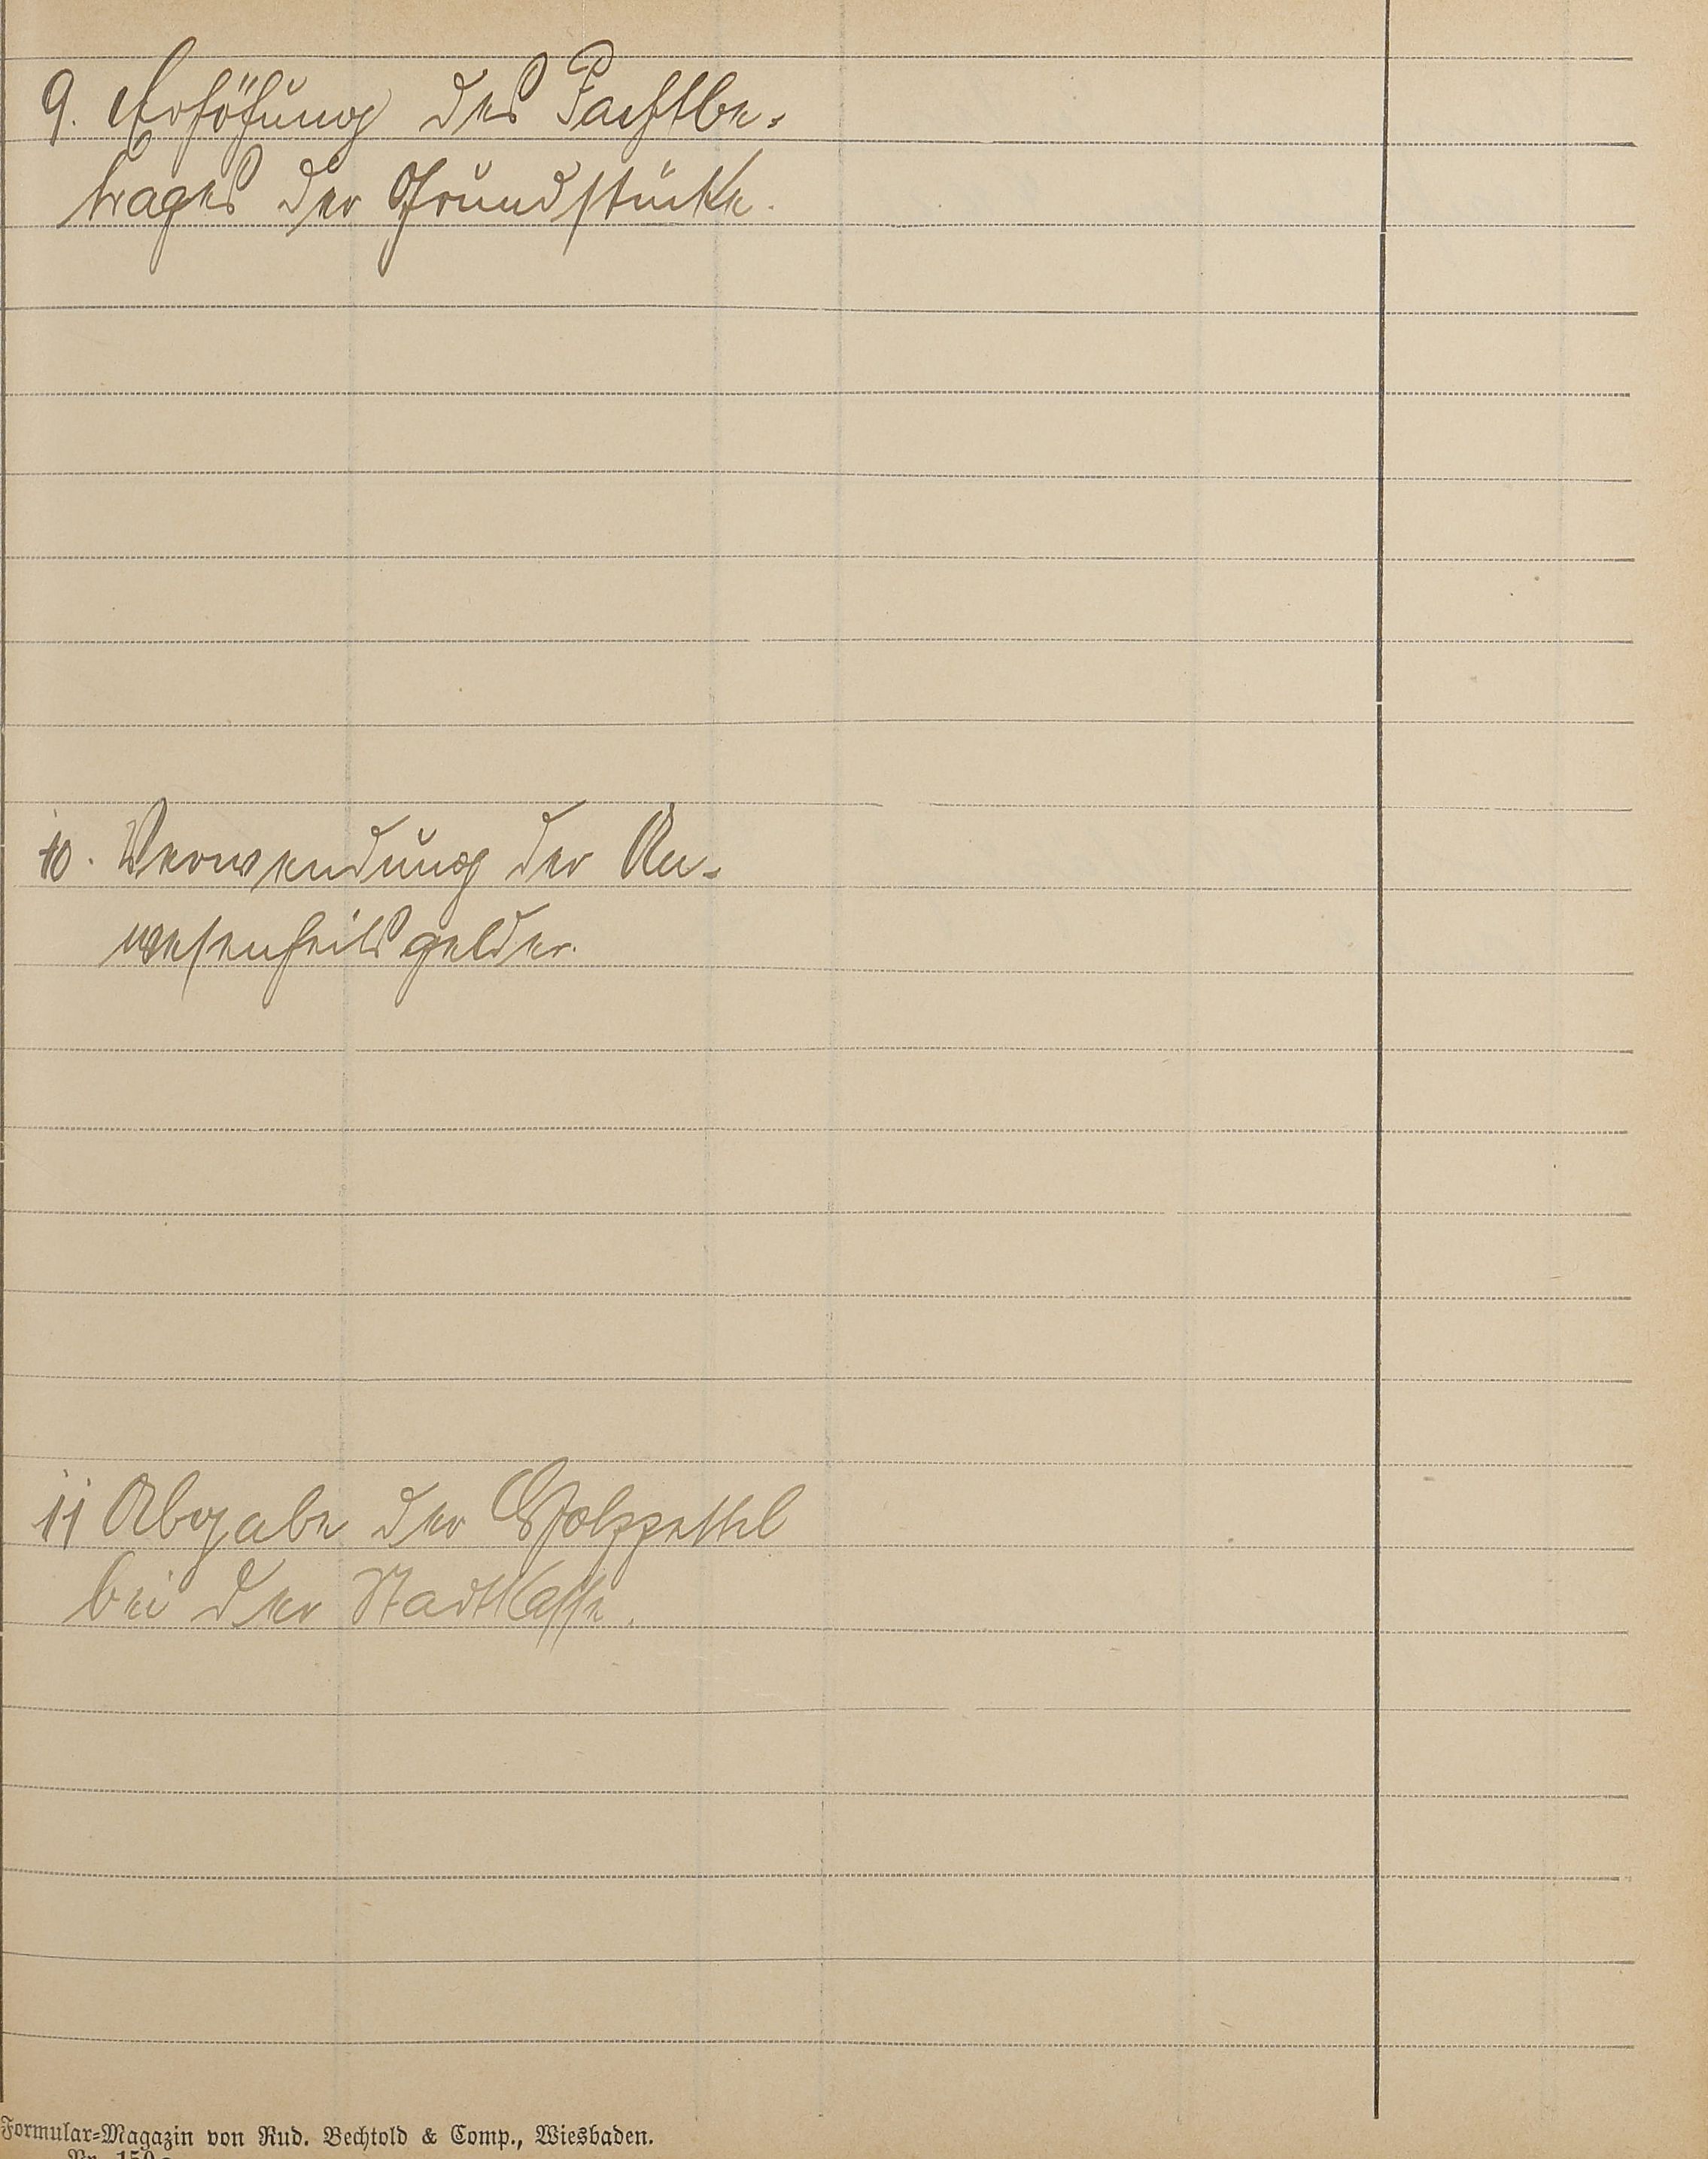 9. Erhöhung des Pachtbe-
trages der Grundstücke.
10. Verwendung der An-
wesenheitsgelder.
11 Abgabe der Holzzettel
bei der Stadtkasse.
Formular-Magazin von Rud. Bechtold & Comp., Wiesbaden.
Nr. 150